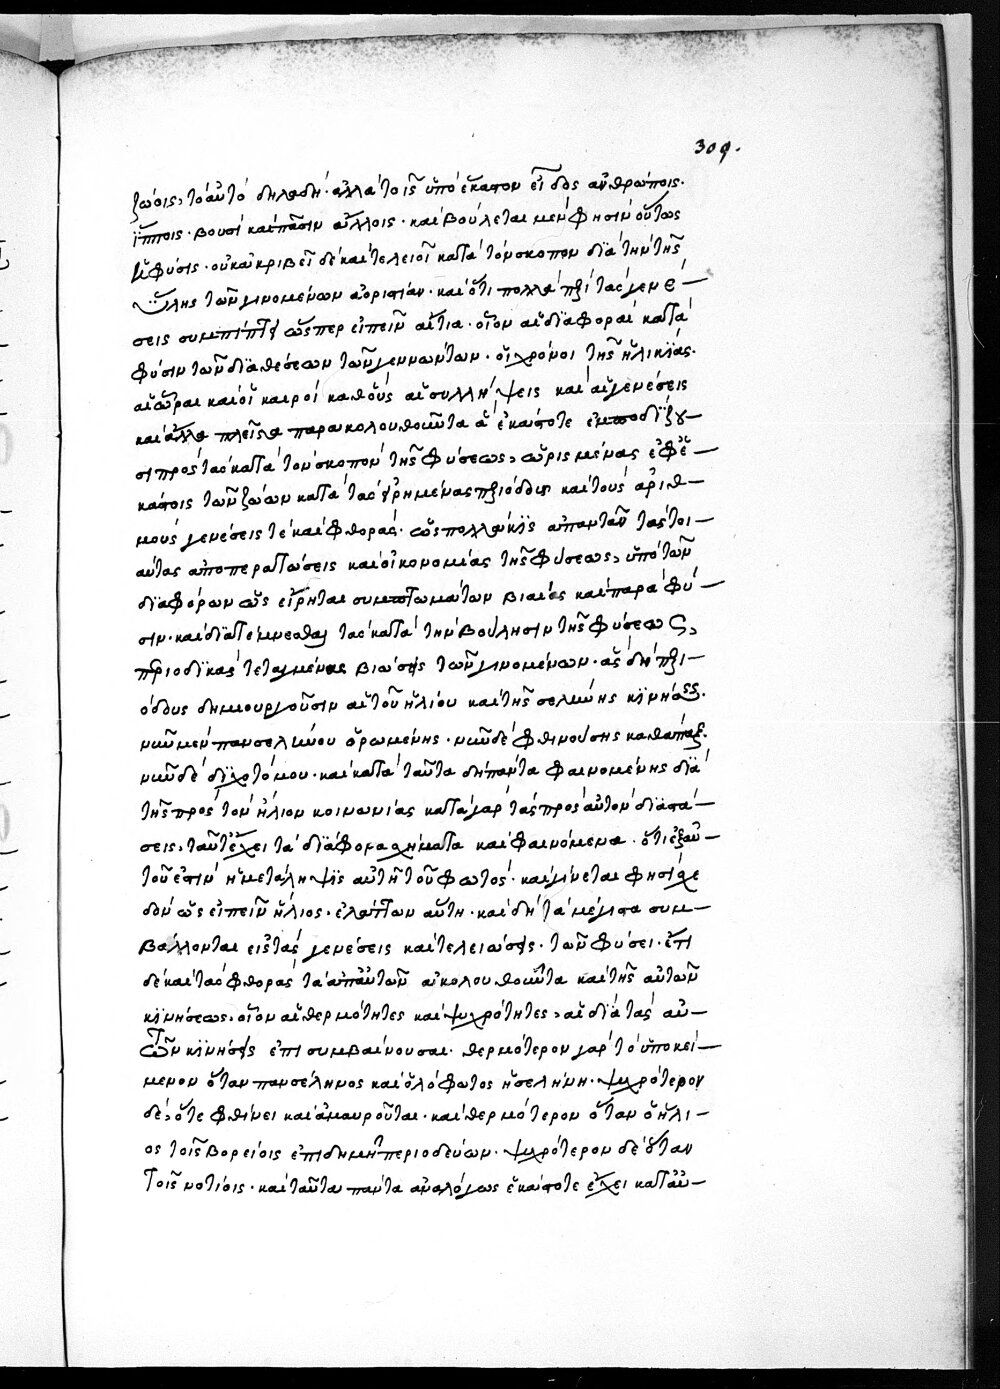 309.
ζώοις, τὸ αὐτὸ δηλαδή· ἀλλὰ τοῖς ὑπὸ ἕκαστον εἶδος ἀνθρώποις·
ἵπποις· βουσὶ καὶ πᾶσιν ἄλλοις· καὶ βούλεται μὲν φησὶν οὕτως
ἡ φύσις· οὐκ ἀκριβεῖ δὲ καὶ τελειοῖ κατὰ τὸν σκοπὸν διὰ τὴν τῆς
ὕλης τῶν γινομένων ἀοριστίαν· καὶ ὅτι πολλὰ περὶ τὰς γενέ–
σεις συμπίπτει ὥσπερ εἰπεῖν αἴτια· οἷον αἱ διαφοραὶ κατὰ
φύσιν τῶν διαθέσεων τῶν γεννώντων· οἱ χρόνοι τῆς ἡλικίας·
αἱ ὧραι καὶ οἱ καιροὶ καθ' οὓς αἱ συλλήψεις καὶ αἱ γενέσεις
καὶ ἄλλα πλεῖστα παρακολουθοῦντα ἃ ἑκάστοτε ἐμποδίζου–
σι πρὸς τὰς κατὰ τὸν σκοπὸν τῆς φύσεως, ὡρισμένας ἐφ' ἑ–
κάστοις τῶν ζώων κατὰ τὰς εἰρημένας περιόδους καὶ τοὺς ἀριθ–
μοὺς γενέσεις τὲ καὶ φθοράς· ὡς πολλάκις ἀπαντᾶν τὰς τοι–
αύτας ἀποπερατώσεις καὶ οἰκονομίας τῆς φύσεως, ὑπὸ τῶν
διαφόρων ὡς εἴρηται συμπτωμάτων βιαίας καὶ παρὰ φύ–
σιν· καὶ διατέμνεσθαι τὰς κατὰ τὴν βούλησιν τῆς φύσεως,
περιοδικὰς τεταγμένας βιώσεις τῶν γινομένων· ἃς δὴ περι–
όδους δημιουργοῦσιν αἱ τοῦ ἡλίου καὶ τῆς σελήνης κινήσεις·
νῦν μὲν πανσελήνου ὁρωμένης· νῦν δὲ φθινούσης καθάπαξ·
νῦν δὲ διχοτόμου· καὶ κατὰ ταῦτα δὴ πάντα φαινομένης διὰ
τῆς πρὸς τὸν ἥλιον κοινωνίας κατὰ γὰρ τὰς πρὸς αὐτὸν διαστά–
σεις, ταῦτ' ἔχει τὰ διάφορα σχήματα καὶ φαινόμενα· ὅτι ἐξ αὐ–
τοῦ ἐστὶν ἡ μετάληψις αὐτῇ τοῦ φωτός· καὶ γίνεται φησὶ σχε
δὸν ὡς εἰπεῖν ἥλιος· ἐλάττων αὕτη· καὶ δὴ τὰ μέγιστα συμ–
βάλλονται εἰς τὰς γενέσεις καὶ τελειώσεις· τῶν φύσει· ἔτι
δὲ καὶ τὰς φθορὰς τὰ ἀπ' αὐτῶν ἀκολουθοῦντα καὶ τῆς αὐτῶν
κινήσεως· οἷον αἱ θερμότητες καὶ ψυχρότητες, αἱ διὰ τὰς αὐ–
τῶν κινήσεις ἐπισυμβαίνουσαι· θερμότερον γὰρ τὸ ὑποκεί–
μενον ὅταν πανσέληνος καὶ ὁλόφωτος ἡ σελήνη· ψυχρότερον
δὲ, ὅτε φθίνει καὶ ἀμαυροῦται· καὶ θερμότερον ὅταν ὁ ἥλι–
ος τοῖς βορείοις ἐπιδημῇ περιοδεύων· ψυχρότερον δὲ ὅταν
τοῖς νοτίοις· καὶ ταῦτα πάντα ἀναλόγως ἑκάστοτε ἔχει κατ' αὐ–